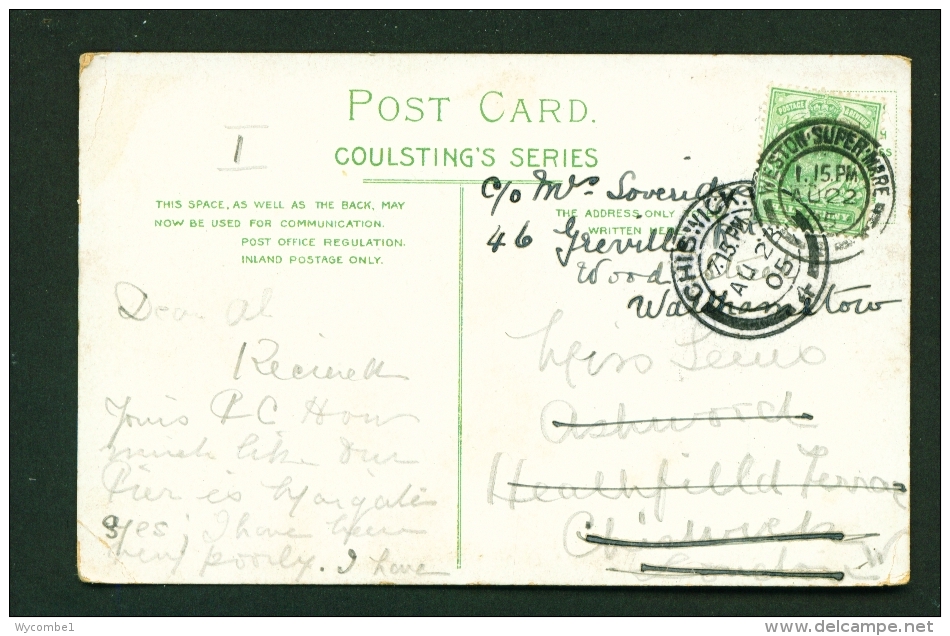 POST CARD.
COULSTING'S SERIES
I
THIS SPACE, AS WELL AS THE BACK, MAY
NOW BE USED FOR COMMUNICATION.
POST OFFICE REGULATION.
INLAND POSTAGE ONLY.
THE ADDRESS ONLY
WRITTEN HERE
POSTAGE
WESTON-SUPER-MARE
1.15.PM
AU 22
CHISWICK
7.15.PM
AU 22
05
4
c/o Mrs
46
Wood
Walthamstow
Miss
Ashword
Heathfield Terrace
Chiswick
London W
Dear
Recieved
Yours P C How
much like our
Pier is Margate
yes; I have been
very poorly. I have
Wycombe1
postales.delcampe.net